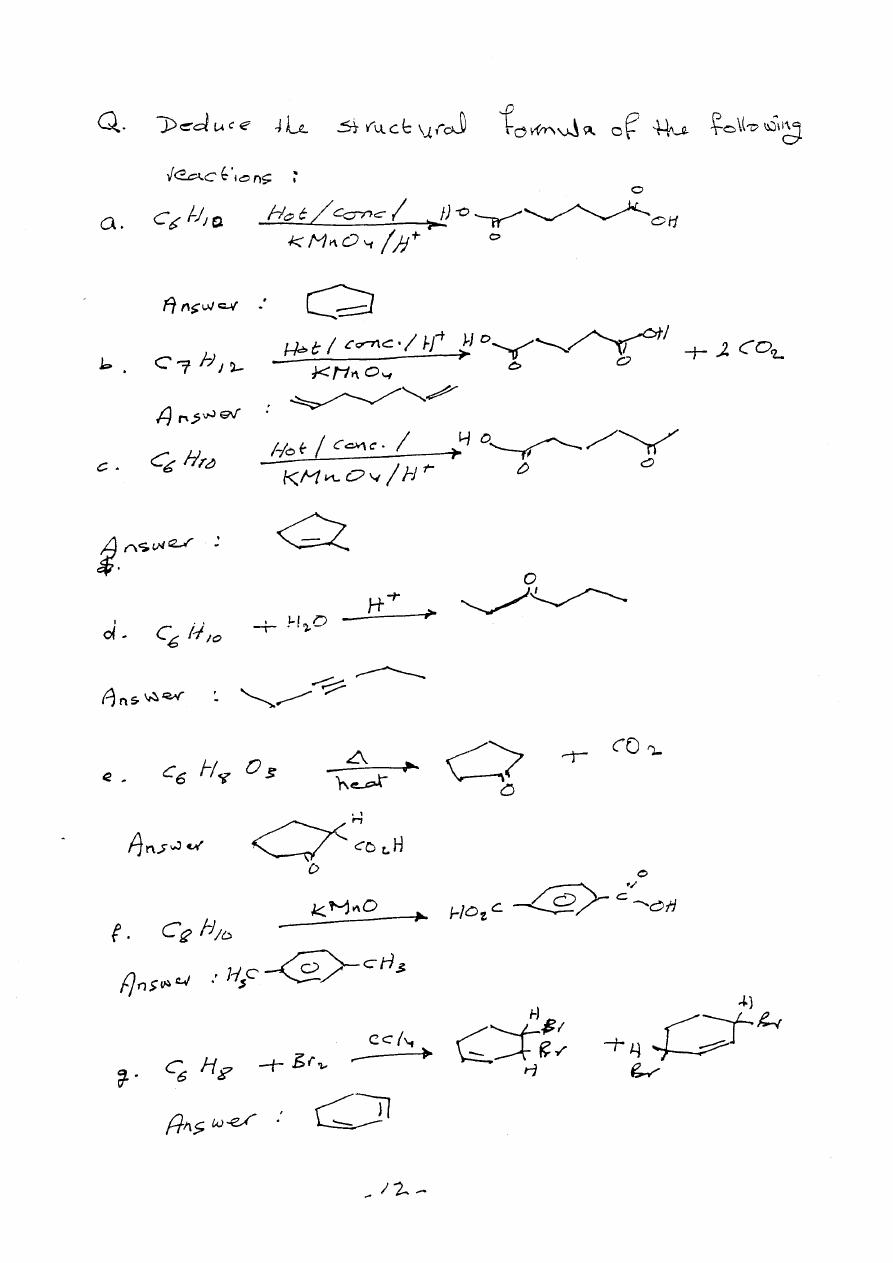 Q. Deduce the structural formula of the following
reactions :
a. C6H10 Hot/conc/ KMnO4/H+ HO O O OH
Answer :
b. C7H12 Hot/conc./H+ KMnO4 HO O O OH + 2 CO2
Answer :
c. C6H10 Hot/conc./ KMnO4/H+ HO O O
Answer :
d. C6H10 + H2O H+ O
Answer :
e. C6H8O3 Δ heat O + CO2
Answer H CO2H O
f. C8H10 KMnO HO2C C O OH
Answer : H3C CH3
g. C6H8 + Br2 CCl4 H Br Br H + H Br H Br
Answer :
-12-